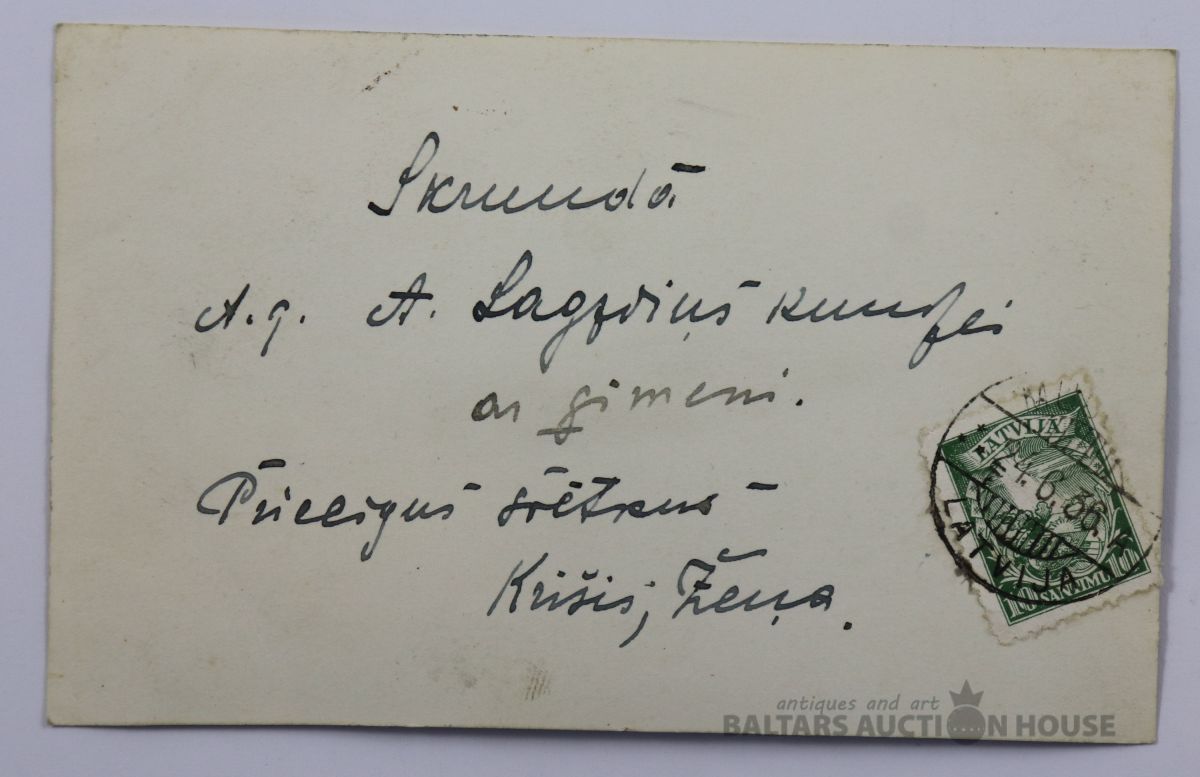 Skrundā
A.g. A. Lagzdiņš kundzei
ar ģimeni.
Priecīgus svētkus
Krišis, Žeņa.
LATVIJA
4.6.36.
LATVIJA
10 SANTIMU 10
antiques and art
BALTARS AUCTION HOUSE